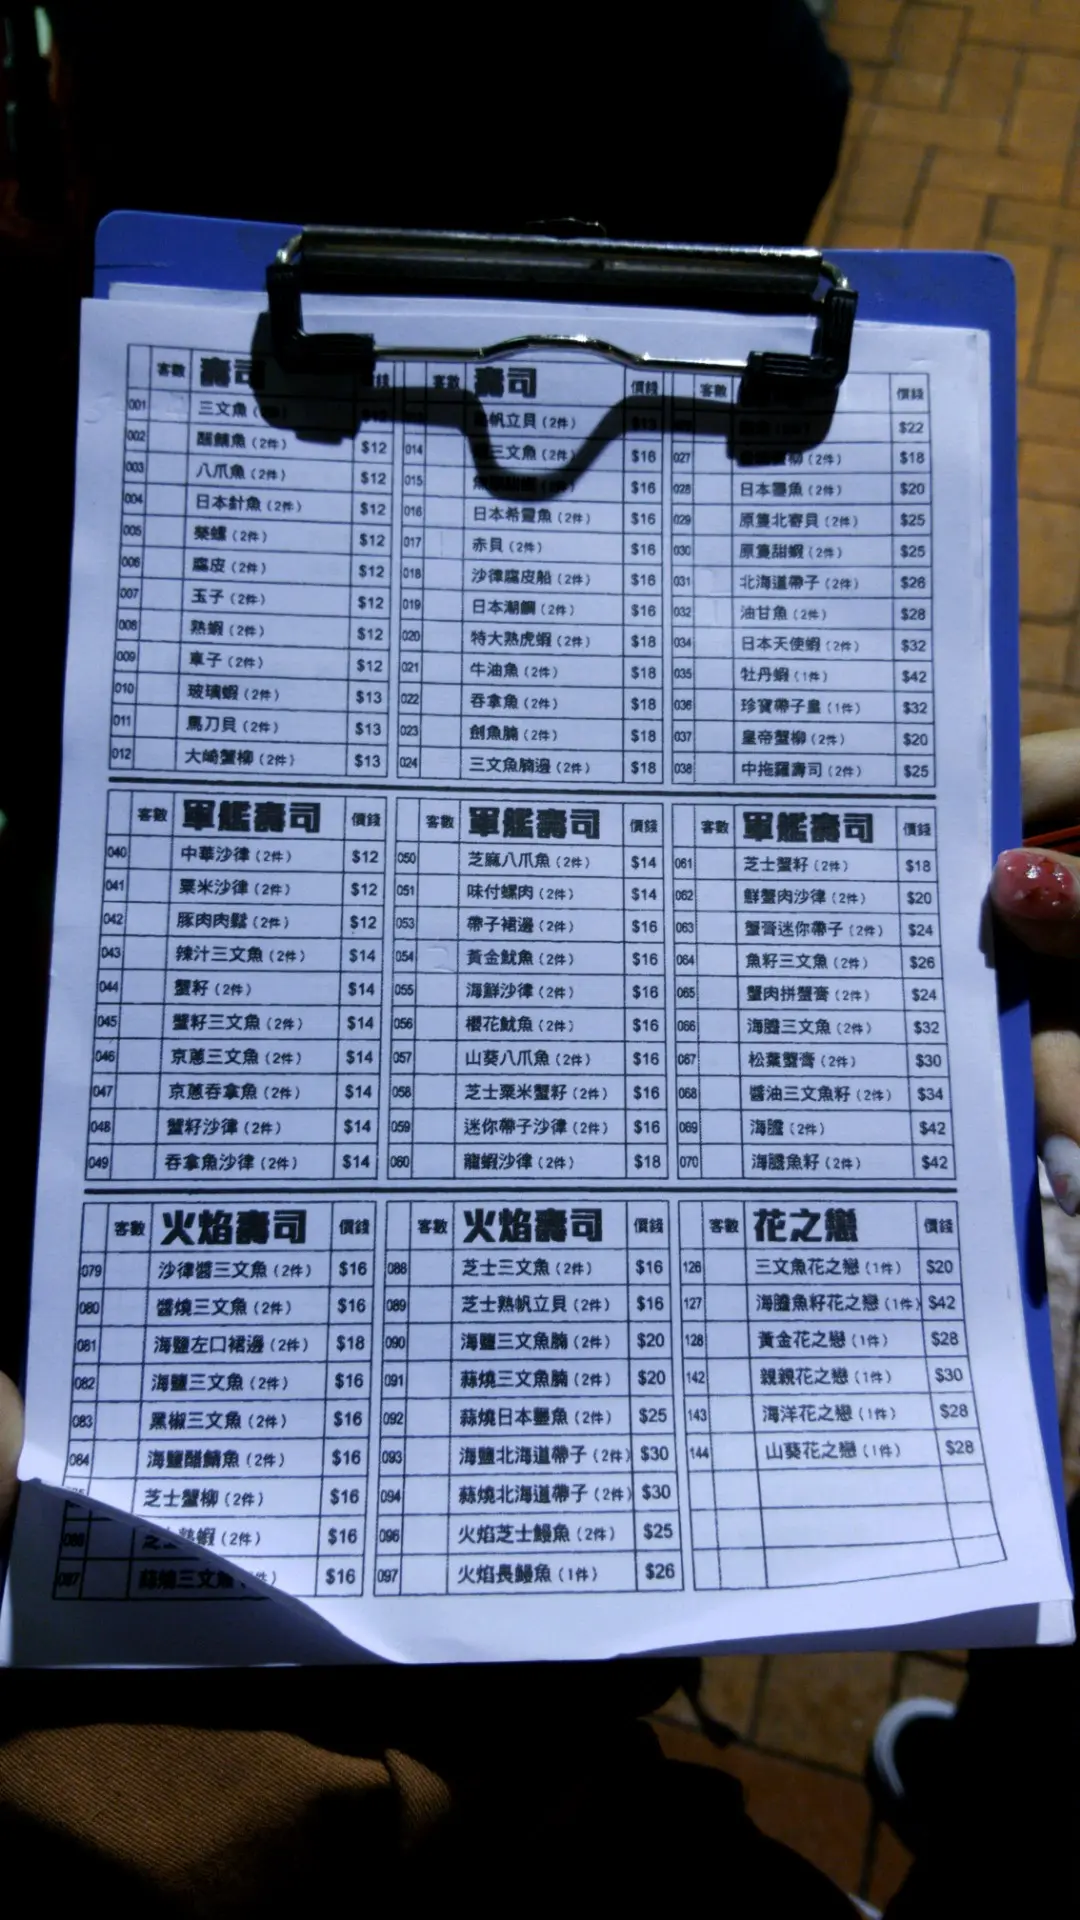 客數 壽司 價錢
001 三文魚
002 醋鯖魚(2件) $12
003 八爪魚(2件) $12
004 日本針魚(2件) $12
005 榮螺(2件) $12
006 腐皮(2件) $12
007 玉子(2件) $12
008 熟蝦(2件) $12
009 車子(2件) $12
010 玻璃蝦(2件) $13
011 馬刀貝(2件) $13
012 大崎蟹柳(2件) $13
客數 壽司 價錢
帆立貝(2件) $13
014 三文魚(2件) $16
015 $16
016 日本希靈魚(2件) $16
017 赤貝(2件) $16
018 沙律腐皮船(2件) $16
019 日本潮鯛(2件) $16
020 特大熟虎蝦(2件) $18
021 牛油魚(2件) $18
022 吞拿魚(2件) $18
023 劍魚腩(2件) $18
024 三文魚腩邊(2件) $18
客數 價錢
$22
027 蟹柳(2件) $18
028 日本墨魚(2件) $20
029 原隻北寄貝(2件) $25
030 原隻甜蝦(2件) $25
031 北海道帶子(2件) $26
032 油甘魚(2件) $28
034 日本天使蝦(2件) $32
035 牡丹蝦(1件) $42
036 珍寶帶子皇(1件) $32
037 皇帝蟹柳(2件) $20
038 中拖羅壽司(2件) $25
客數 軍艦壽司 價錢
040 中華沙律(2件) $12
041 粟米沙律(2件) $12
042 豚肉肉鬆(2件) $12
043 辣汁三文魚(2件) $14
044 蟹籽(2件) $14
045 蟹籽三文魚(2件) $14
046 京蔥三文魚(2件) $14
047 京蔥吞拿魚(2件) $14
048 蟹籽沙律(2件) $14
049 吞拿魚沙律(2件) $14
客數 軍艦壽司 價錢
050 芝麻八爪魚(2件) $14
051 味付螺肉(2件) $14
053 帶子裙邊(2件) $16
054 黃金魷魚(2件) $16
055 海鮮沙律(2件) $16
056 櫻花魷魚(2件) $16
057 山葵八爪魚(2件) $16
058 芝士粟米蟹籽(2件) $16
059 迷你帶子沙律(2件) $16
060 龍蝦沙律(2件) $18
客數 軍艦壽司 價錢
061 芝士蟹籽(2件) $18
062 鮮蟹肉沙律(2件) $20
063 蟹膏迷你帶子(2件) $24
064 魚籽三文魚(2件) $26
065 蟹肉拼蟹膏(2件) $24
066 海膽三文魚(2件) $32
067 松葉蟹膏(2件) $30
068 醬油三文魚籽(2件) $34
069 海膽(2件) $42
070 海膽魚籽(2件) $42
客數 火焰壽司 價錢
079 沙律醬三文魚(2件) $16
080 醬燒三文魚(2件) $16
081 海鹽左口裙邊(2件) $18
082 海鹽三文魚(2件) $16
083 黑椒三文魚(2件) $16
084 海鹽醋鯖魚(2件) $16
芝士蟹柳(2件) $16
086 芝士熟蝦(2件) $16
087 蒜燒三文魚 $16
客數 火焰壽司 價錢
088 芝士三文魚(2件) $16
089 芝士熟帆立貝(2件) $16
090 海鹽三文魚腩(2件) $20
091 蒜燒三文魚腩(2件) $20
092 蒜燒日本墨魚(2件) $25
093 海鹽北海道帶子(2件) $30
094 蒜燒北海道帶子(2件) $30
096 火焰芝士鰻魚(2件) $25
097 火焰長鰻魚(1件) $26
客數 花之戀 價錢
126 三文魚花之戀(1件) $20
127 海膽魚籽花之戀(1件) $42
128 黃金花之戀(1件) $28
142 親親花之戀(1件) $30
143 海洋花之戀(1件) $28
144 山葵花之戀(1件) $28